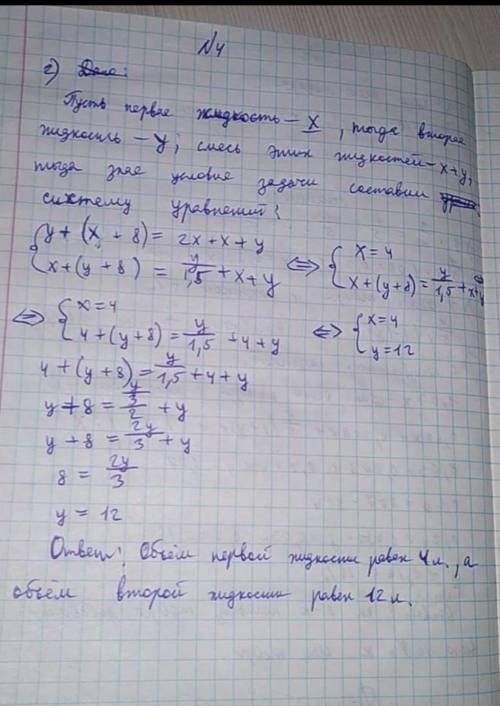 N4
2) Дано:
Пусть первая жидкость – x, тогда вторая
жидкость – y; смесь этих жидкостей – x+y,
тогда зная условие задачи составим
систему уравнений:
{ y + (x + 8) = 2x + x + y
{ x + (y + 8) = y/1,5 + x + y
⇔ { x = 4
{ x + (y+8) = y/1,5 + x + y ⇔
⇔ { x = 4
{ 4 + (y+8) = y/1,5 + 4 + y
⇔ { x = 4
{ y = 12
4 + (y + 8) = y/1,5 + 4 + y
y + 8 = y/(3/2) + y
y + 8 = 2y/3 + y
8 = 2y/3
y = 12
Ответ: Объём первой жидкости равен 4 л., а
объём второй жидкости равен 12 л.